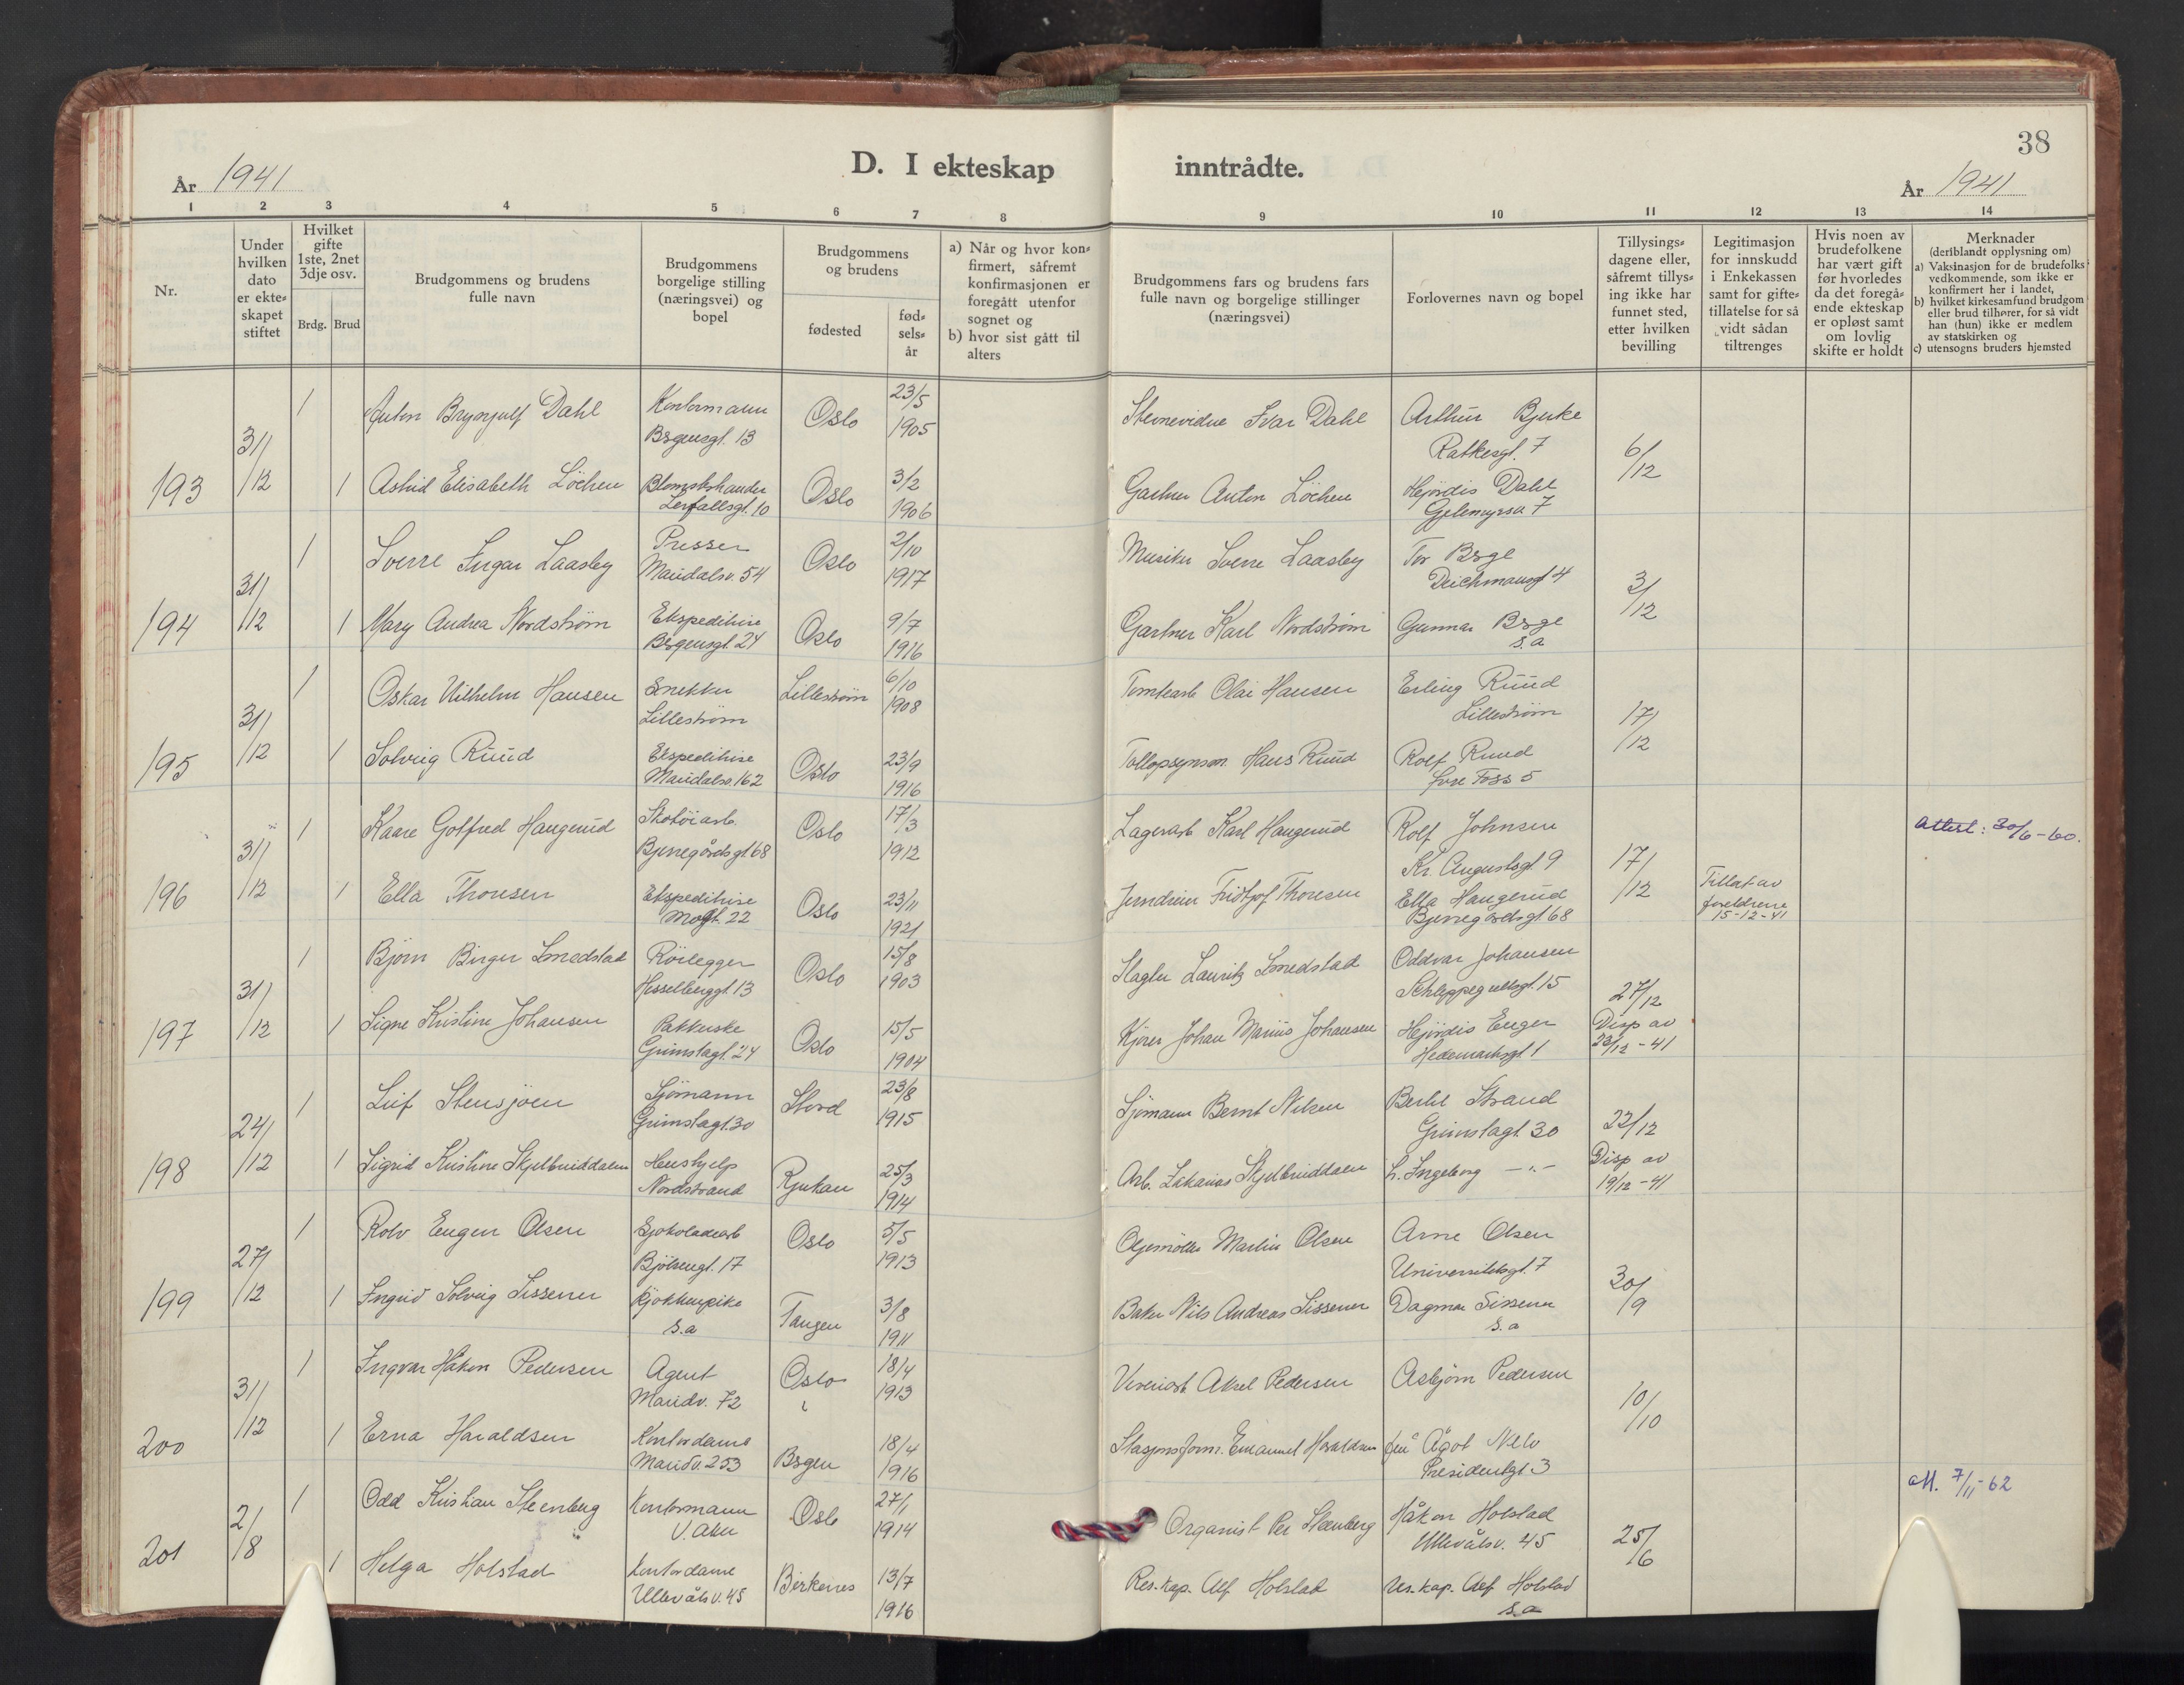 38
År 1941
D. I ekteskap inntrådte.
År 1941
1 2 3 4 5 6 7 8 9 10 11 12 13 14
Nr.
Under hvilken dato er ekte-skapet stiftet
Hvilket gifte 1ste, 2net 3dje osv.
Brdg. Brud
Brudgommens og brudens fulle navn
Brudgommens borgelige stilling (næringsvei) og bopel
Brudgommens og brudens
fødested
fød-sels-år
a) Når og hvor kon-firmert, såfremt konfirmasjonen er foregått utenfor sognet og
b) hvor sist gått til alters
Brudgommens fars og brudens fars fulle navn og borgelige stillinger (næringsvei)
Forlovernes navn og bopel
Tillysings-dagene eller, såfremt tillys-ing ikke har funnet sted, etter hvilken bevilling
Legitimasjon for innskudd i Enkekassen samt for gifte-tillatelse for så vidt sådan tiltrenges
Hvis noen av brudefolkene har vært gift før hvorledes da det foregå-ende ekteskap er opløst samt om lovlig skifte er holdt
Merknader
(deriblandt opplysning om)
a) Vaksinasjon for de brudefolks vedkommende, som ikke er konfirmert her i landet,
b) hvilket kirkesamfund brudgom eller brud tilhører, for så vidt han (hun) ikke er medlem av statskirken og
c) utensogns bruders hjemsted
193 31/12
1 Anton Brynjulf Dahl Kontormann Oslo 23/5 1905 Ivar Dahl Arthur Bjerke
Bergensgt. 13 Ratkesgt. 7 6/12
1 Astrid Elisabeth Löchen Oslo 3/2 1906 Gartner Anton Löchen Hjördis Dahl
7
194 31/12
1 Sverre Ingar Laasby Presser Oslo 2/10 1917 Musiker Sverre Laasby Tor Berge
Maridalsv. 54 Deichmansgt 4 3/12
1 Mary Andrea Nordstrøm Ekspeditrise Oslo 9/7 1916 Gartner Karl Nordstrøm Gunnar Berge
Bergensgt. 24 s.a
195 31/12
1 Oskar Vilhelm Hansen Snekker Lillestrøm 6/10 1908 Tomtearb Olai Hansen Erling Ruud
Lillestrøm Lillestrøm 17/12
1 Solveig Ruud Ekspeditrise Oslo 23/9 1916 Hans Ruud Rolf Ruud
Maridalsv. 162 Foss 5
196 31/12
1 Kaare Golfred Haugerud Skotöiarb. Oslo 17/3 1912 Lagerarb Karl Haugerud Rolf Johnsen attest: 30/6-60.
Bjerregårdsgt. 68 Kr. Augustsgt. 9 17/12
1 Ella Thoresen Ekspeditrise Oslo 23/11 1921 Jerndreier Fridtjof Thoresen Ella Haugerud Tillat av foreldrene 15-12-41
22 Bjerregårdsgt. 68
197 31/12
1 Björn Birger Smedstad Rörlegger Oslo 15/8 1903 Slagter Lauritz Smedstad Oddvar Johansen
Hesselberggt. 13 Schleppegrellsgt. 15 27/12
1 Signe Kristine Johansen Pakkerske Oslo 15/5 1904 Kjörer Johan Marius Johansen Hjördis Enger Disp av 23/12-41
Grimstagt. 24 Hedemarksgt 1
198 24/12
1 Leif Stensjöen Sjömann Stord 23/8 1915 Sjömann Bernt Nilsen Bertel Strand
Grimstagt. 30 Grimstagt. 30 22/12
1 Sigrid Kristine Skjelbreiddalen Hushjelp Rjukan 25/3 1914 Arb. Zakarias Skjelbreiddalen Ingeborg —"— Disp av 19/12-41
Nordstrand
199 27/12
1 Rolv Eugen Olsen Sjokoladearb Oslo 5/5 1913 Martin Olsen Arne Olsen
Bjölsengt. 17 Universitetsgt. 7 30/9
1 Ingrid Solveig Sissener Kjökkenpike Tangen 3/8 1911 Baker Nils Andreas Sissener Dagmar Sissener
s.a s.a
200 31/12
1 Ingvar Håkon Pedersen Agent Oslo 18/4 1913 Aksel Pedersen Asbjørn Pedersen
Maridv. 72 10/10
1 Erna Haraldsen Kontordame Bergen 18/4 1916 Stasjonsform. Emanuel Haraldsen Ågot
Maridv. 253 Presidentgt. 3
201 2/8
1 Odd Kristian Steenberg Kontormann Oslo 27/1 1914 Organist Per Steenberg Håkon Holstad att. 7/11-62
V. Aker Ullevålsv. 45 25/6
1 Helga Holstad Kontordame Birkenes 13/7 1916 Res.kap. Alf Holstad Res.kap. Alf Holstad
Ullevålsv. 45 s.a